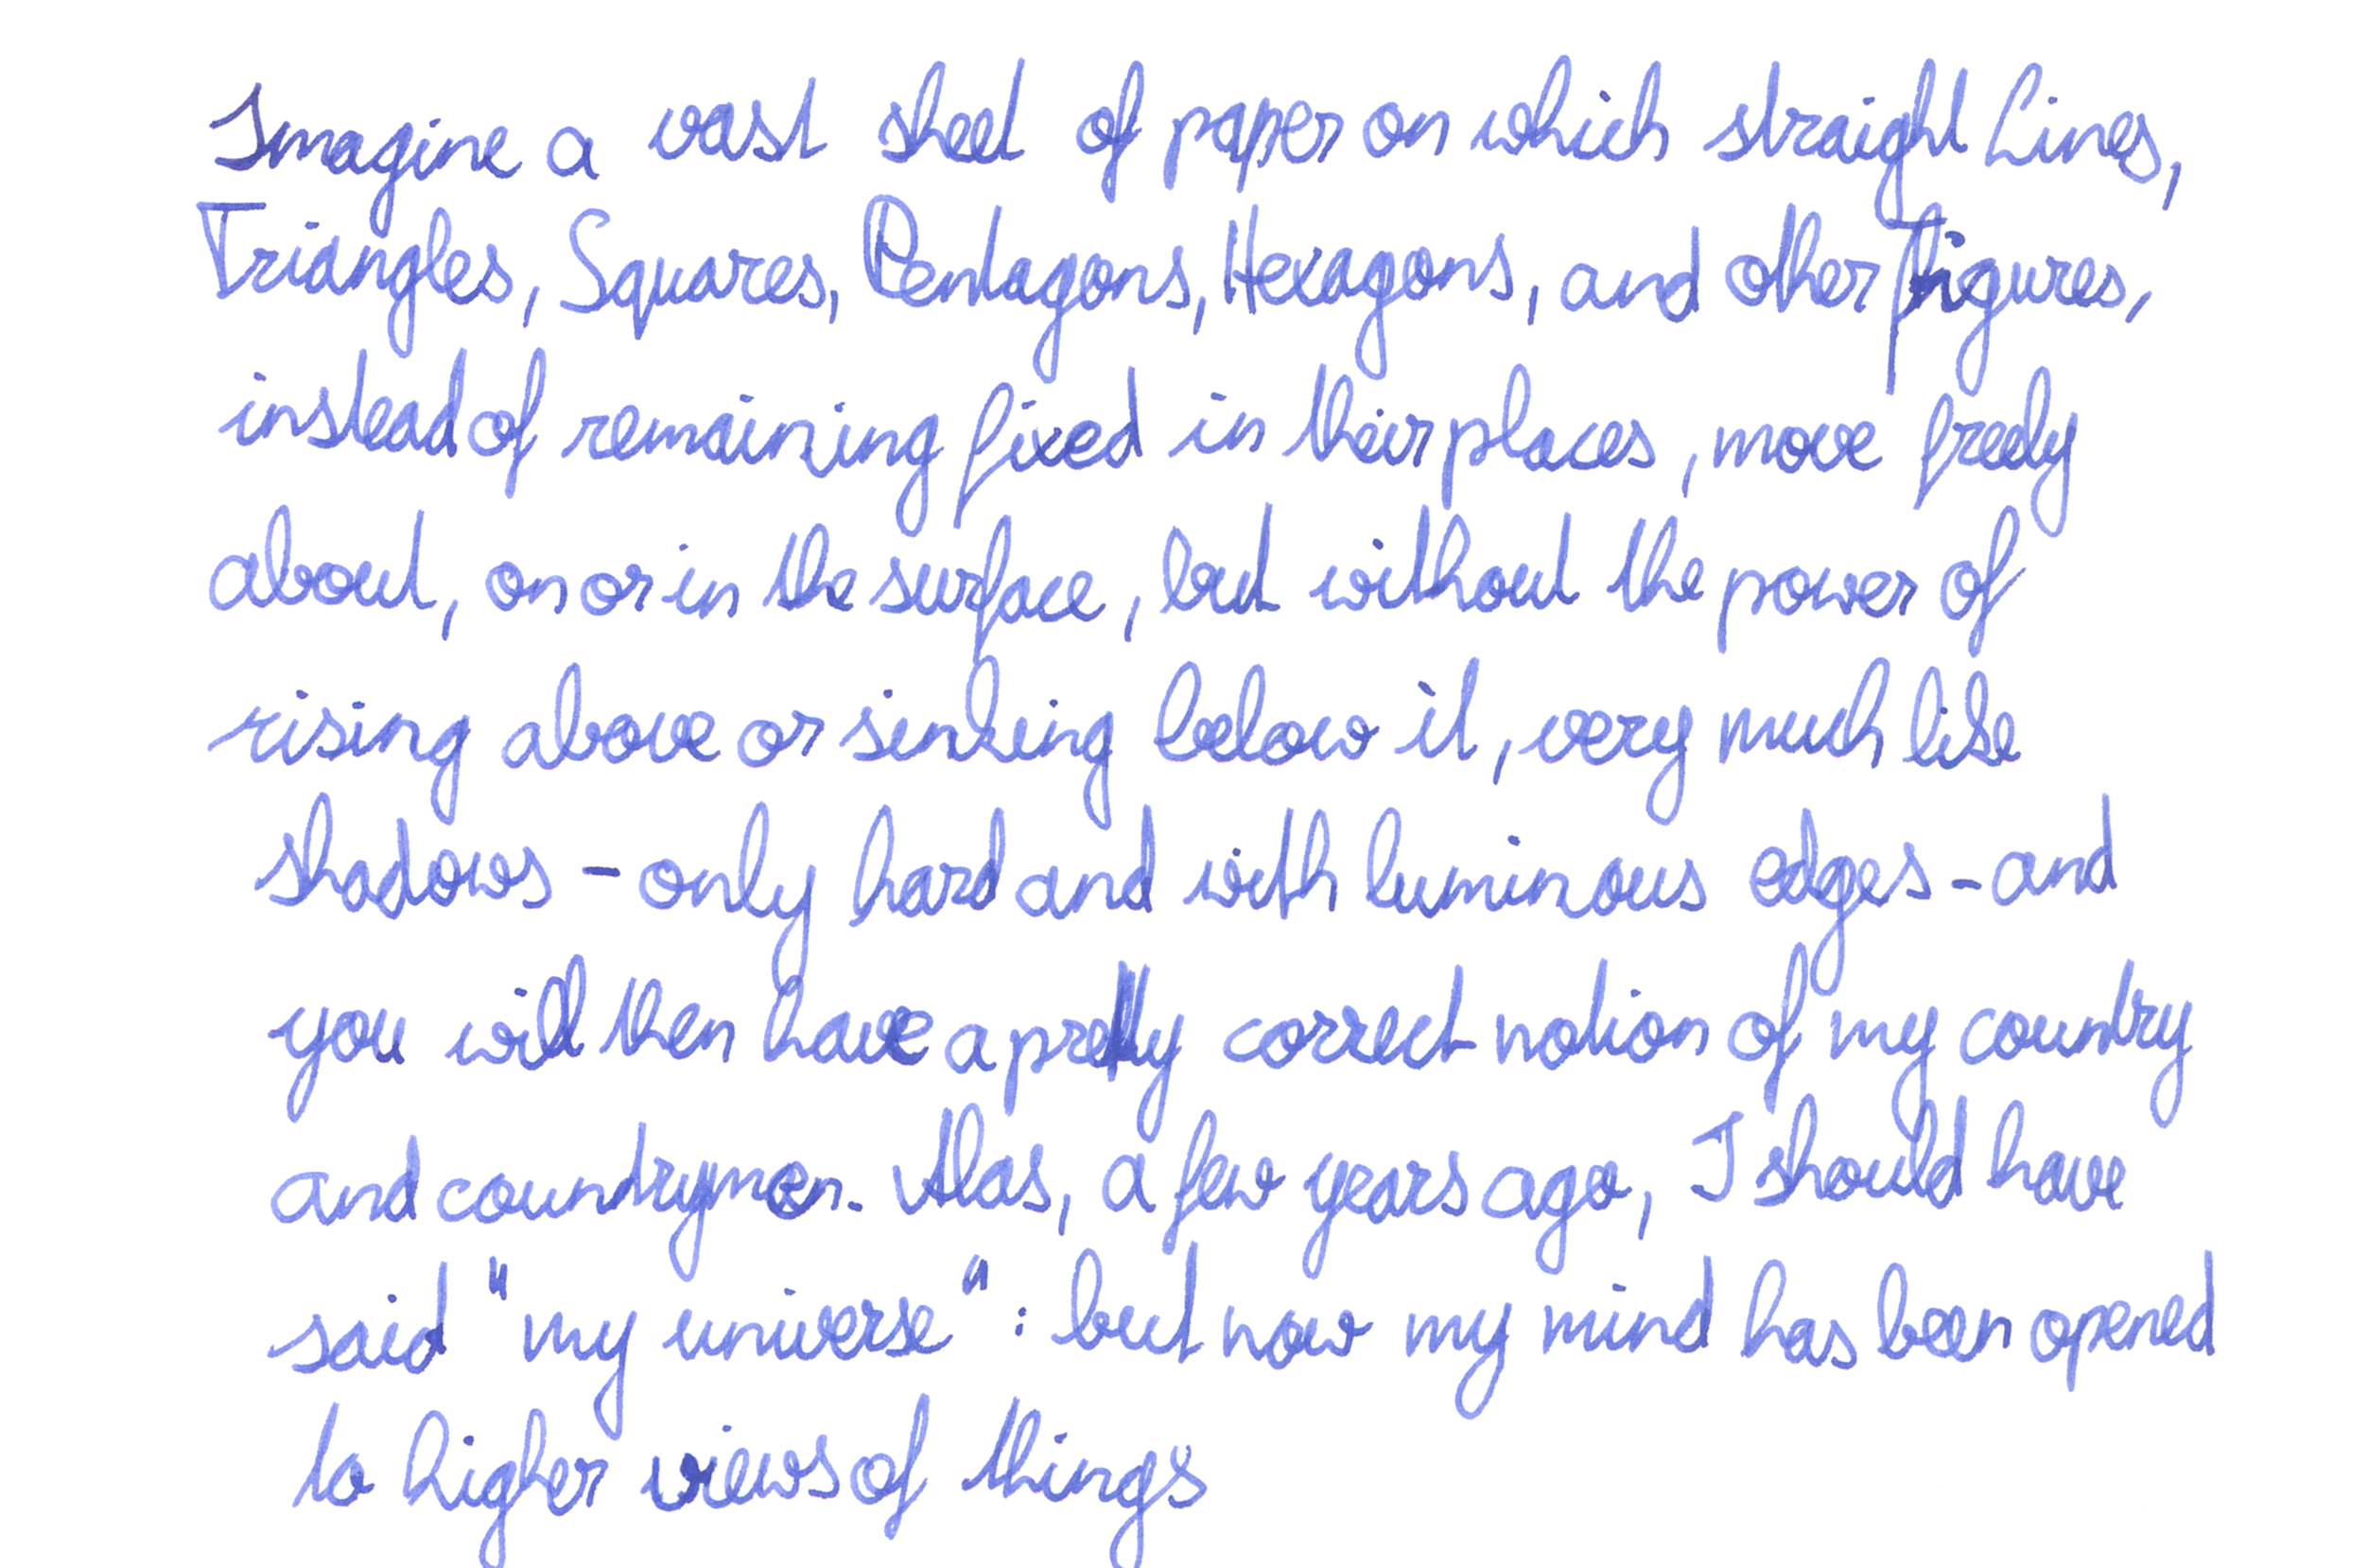 Imagine a vast sheet of paper on which straight Lines,
Triangles, Squares, Pentagons, Hexagons, and other Figures,
instead of remaining fixed in their places, move freely
about, on or in the surface, but without the power of
rising above or sinking below it, very much like
shadows - only hard and with luminous edges - and
you will then have a pretty correct notion of my country
and countrymen. Alas, a few years ago, I should have
said "my universe": but now my mind has been opened
to higher views of things